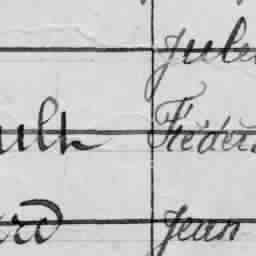 Jules
ult Fréderi
ard Jean